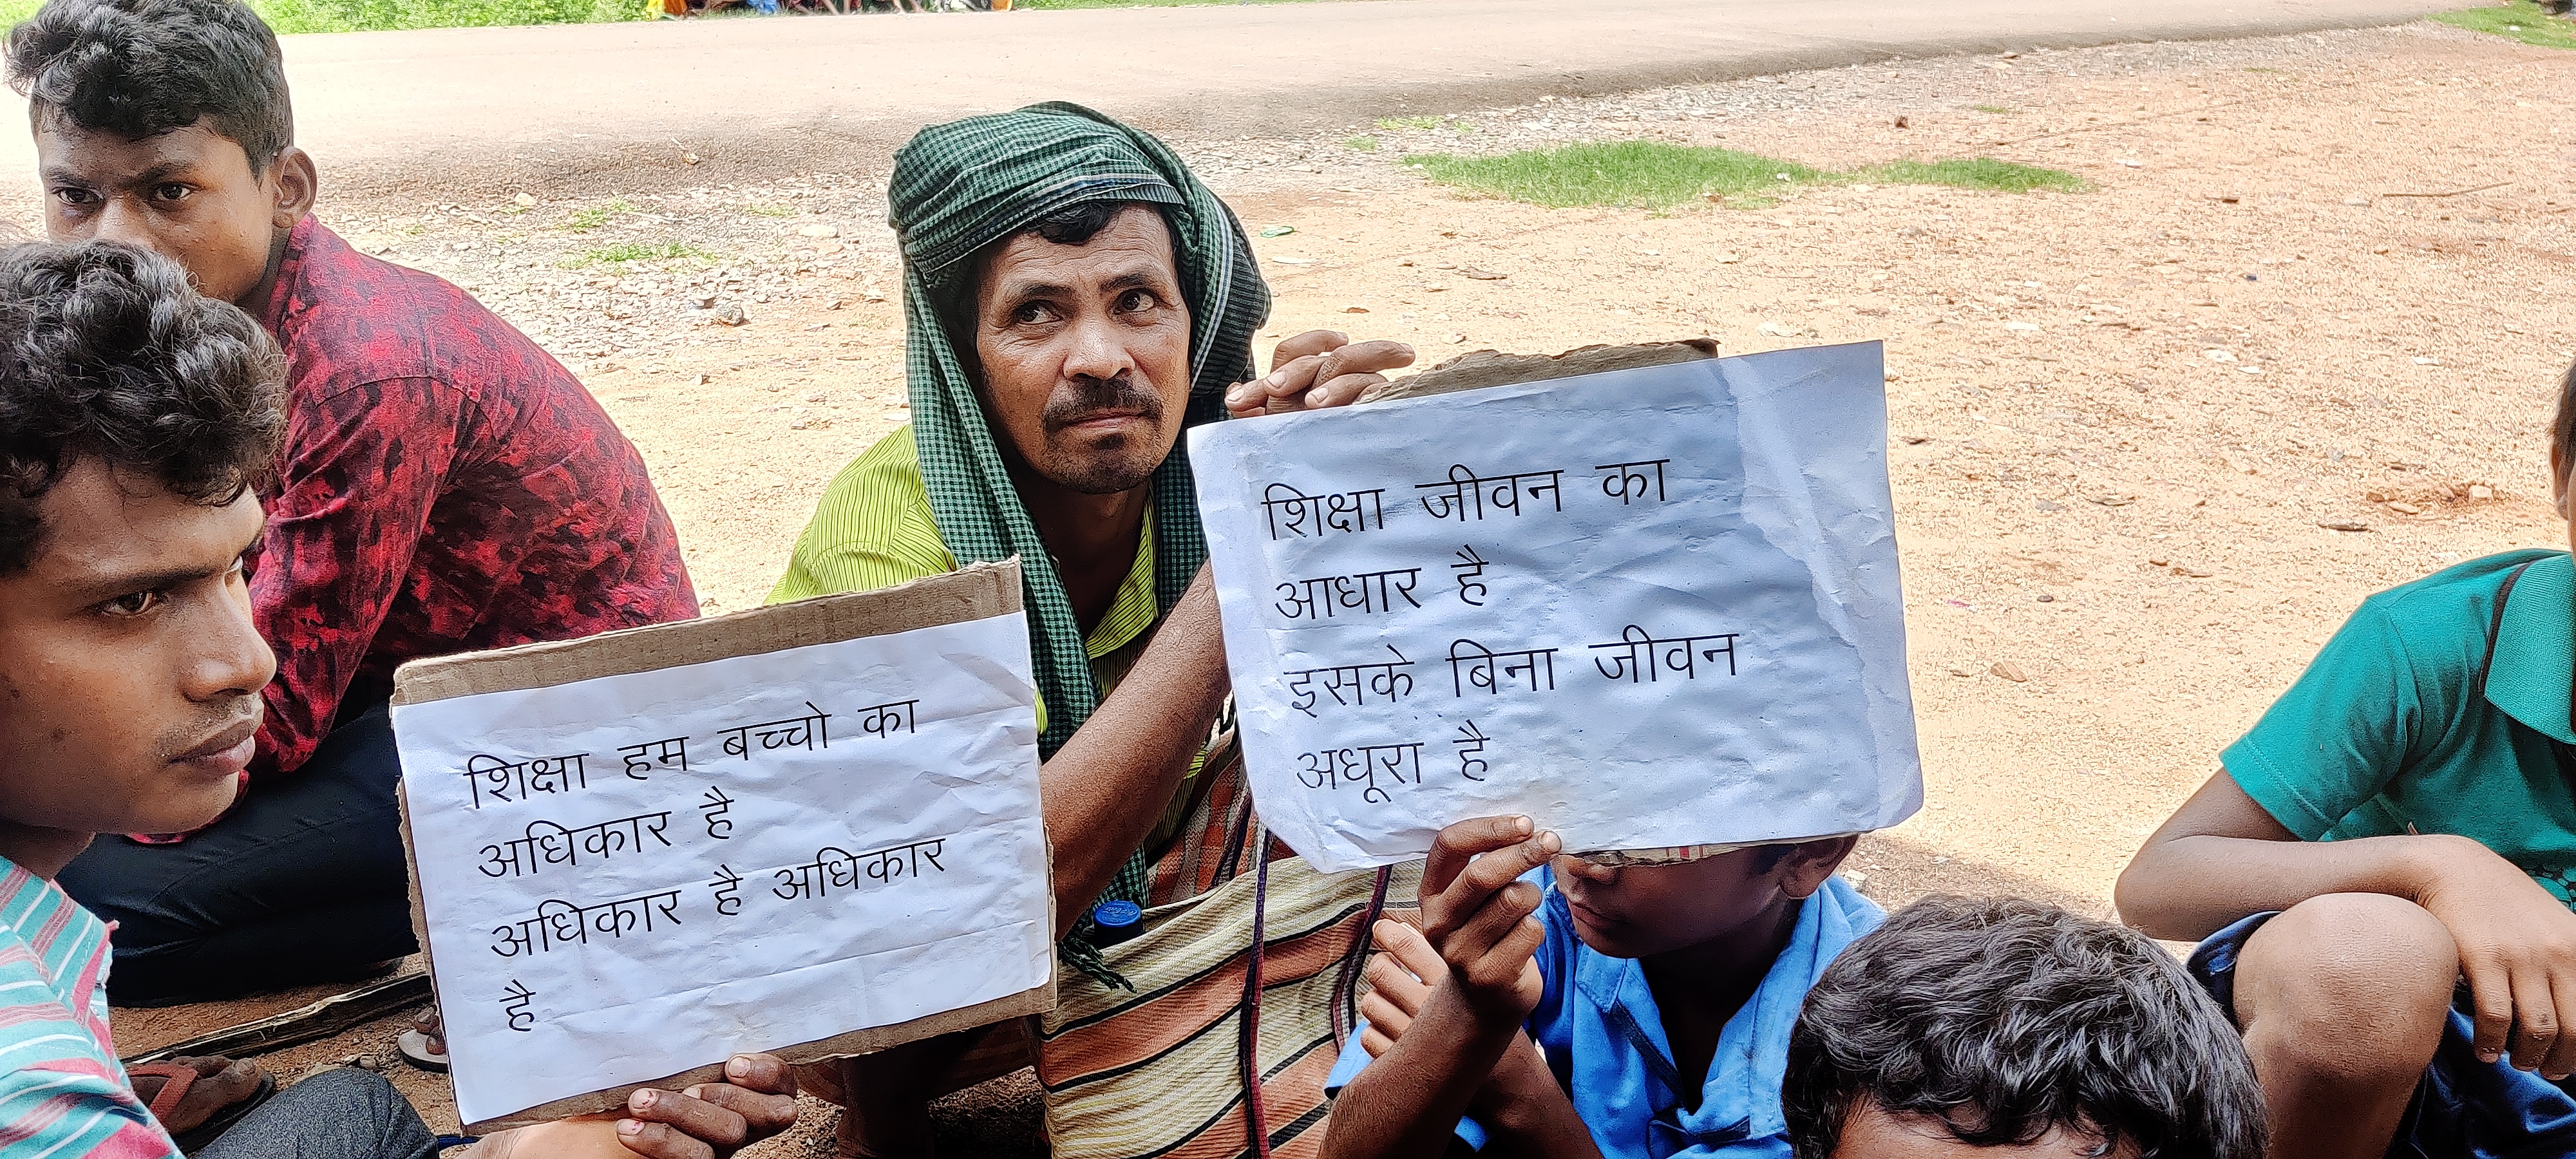 शिक्षा हम बच्चो का
अधिकार है
अधिकार है अधिकार
है
शिक्षा जीवन का
आधार है
इसके बिना जीवन
अधूरा है